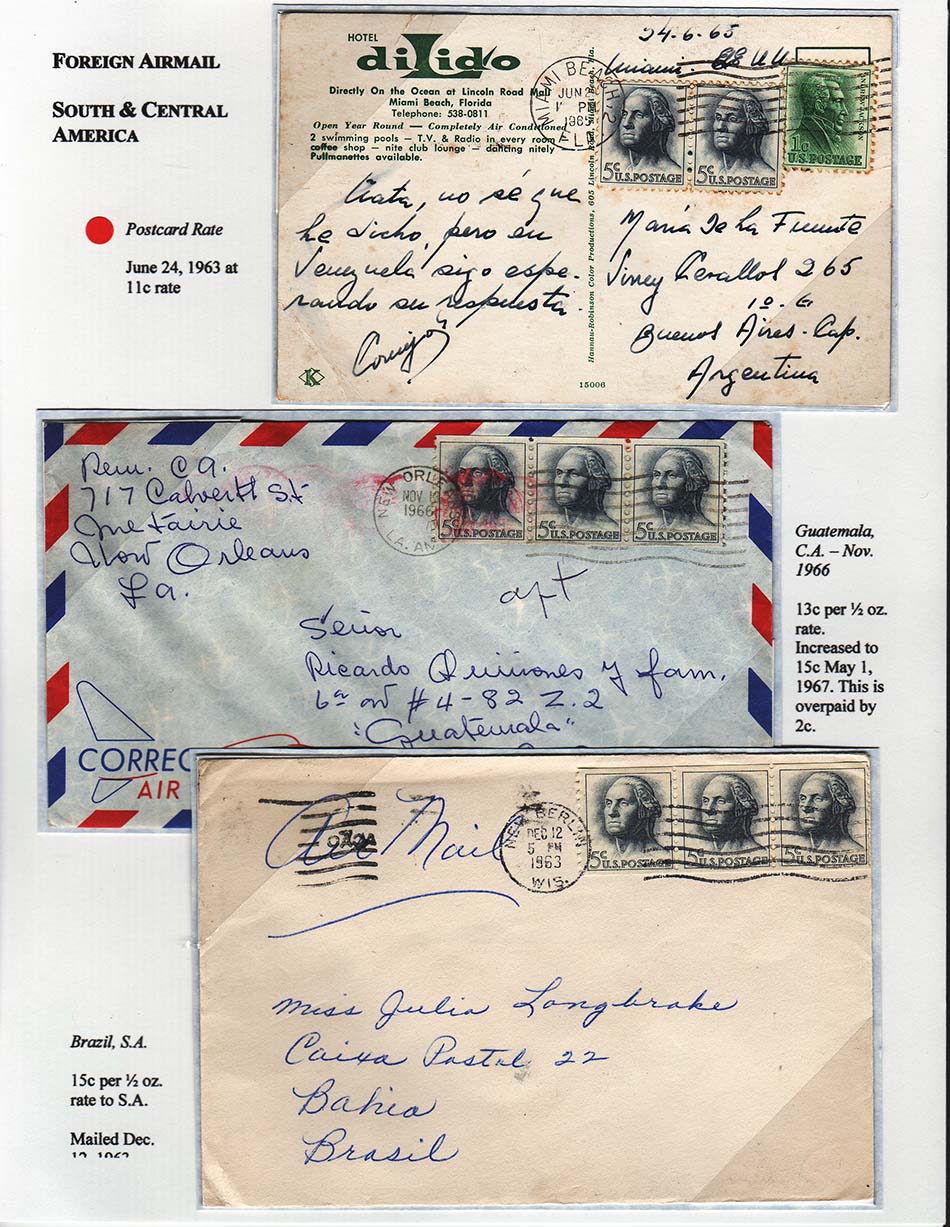 FOREIGN AIRMAIL
SOUTH & CENTRAL
AMERICA
Postcard Rate
June 24, 1963 at
11c rate
HOTEL
diLido
Directly On the Ocean at Lincoln Road Mall
Miami Beach, Florida
Telephone: 538-0811
Open Year Round — Completely Air Conditioned
2 swimming pools — T.V. & Radio in every room
coffee shop — nite club lounge — dancing nitely
Pullmanettes available.
24-6-65
Miami EE UU
MIAMI BEACH
JUN 2
PM
1965
FLA
5c U.S.POSTAGE
5c U.S.POSTAGE
1c U.S.POSTAGE
Tata, no sé que
he dicho, pero en
Venezuela sigo espe-
rando su respuesta.
K
Hannau-Robinson Color Productions, 605 Lincoln Road, Miami Beach, Fla.
15006
María De La Fuente
Virrey Cevallos 265
1º G
Buenos Aires-Cap.
Argentina
Rem. C A.
717 Calvertt St
Metairie
New Orleans
La.
NEW ORLEANS
NOV
1966
LA.
5c U.S.POSTAGE
5c U.S.POSTAGE
5c U.S.POSTAGE
apt
Señor
Ricardo Quiñones y fam.
6a av #4-82 Z.2
"Guatemala"
CORREO
AIR
Guatemala,
C.A. – Nov.
1966
13c per ½ oz.
rate.
Increased to
15c May 1,
1967. This is
overpaid by
2c.
Air Mail
NEW BERLIN
DEC 12
5 PM
1963
WIS.
5c U.S.POSTAGE
5c U.S.POSTAGE
5c U.S.POSTAGE
Miss Julia Longbrake
Caixa Postal 22
Bahia
Brasil
Brazil, S.A.
15c per ½ oz.
rate to S.A.
Mailed Dec.
12, 1963